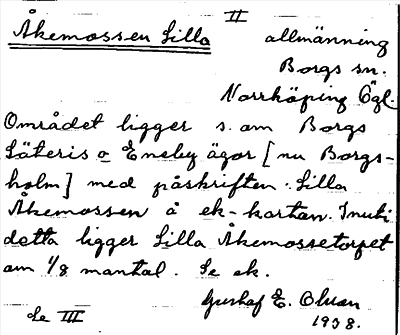 Åkemossen Lilla II allmänning
Borgs sn.
Norrköping Ögl.
Området ligger s. om Borgs
Säteris o Eneby ägor [nu Borgs-
holm] med påskriften: Lilla
Åkemossen å ek-kartan. Inuti
detta ligger Lilla Åkemossetorpet
om 1/8 mantal. Se ek.
Gustaf E. Olsson
1938.
Se III